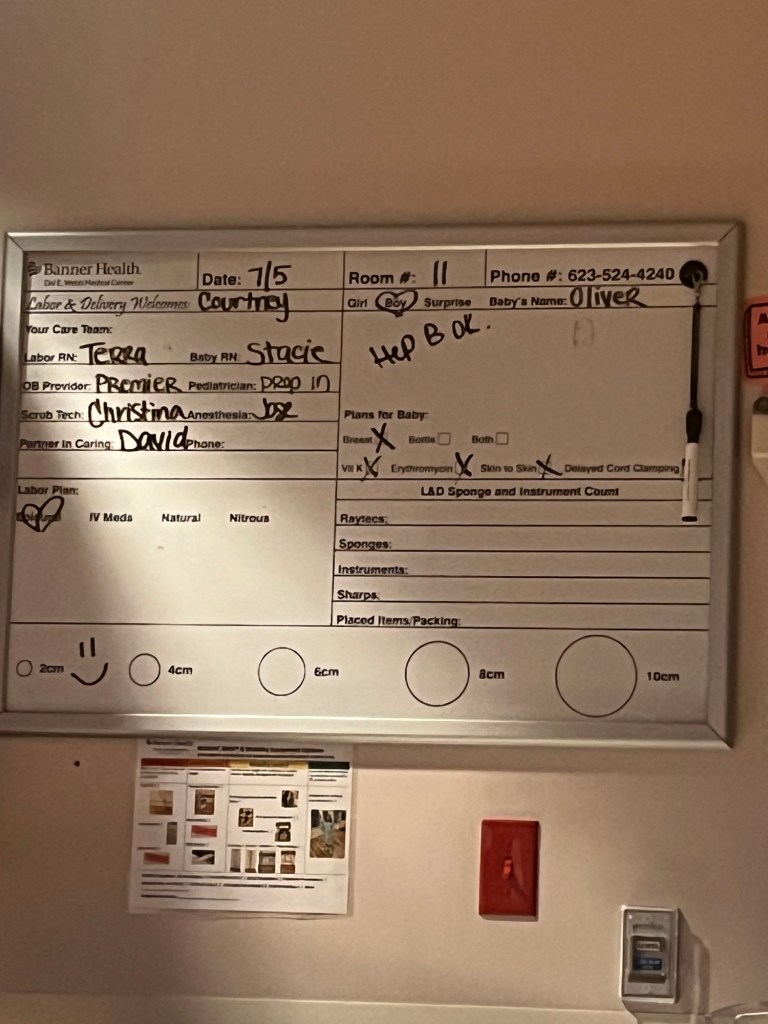 Banner Health
Del E. Webb Medical Center
Date: 7/5
Room #: 11
Phone #: 623-524-4240
Labor & Delivery Welcomes: Courtney
Girl Boy Surprise Baby's Name: OliveR
Your Care Team:
Hep B OK.
Labor RN: Terra Baby RN: Stacie
OB Provider: PRemier Pediatrician: DRop in
Scrub Tech: Christina Anesthesia: Jose
Plans for Baby:
Partner in Caring: David Phone:
Breast X Bottle Both
Vit K X Erythromycin X Skin to Skin X Delayed Cord Clamping
Labor Plan:
L&D Sponge and Instrument Count
IV Meds Natural Nitrous
Raytecs:
Sponges:
Instruments:
Sharps:
Placed Items/Packing:
2cm 4cm 6cm 8cm 10cm
Banner Health